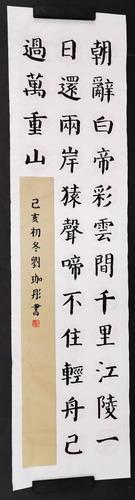 朝辭白帝彩雲間千里江陵一
日還兩岸猿聲啼不住輕舟已
過萬重山
己亥初冬劉珈彤書